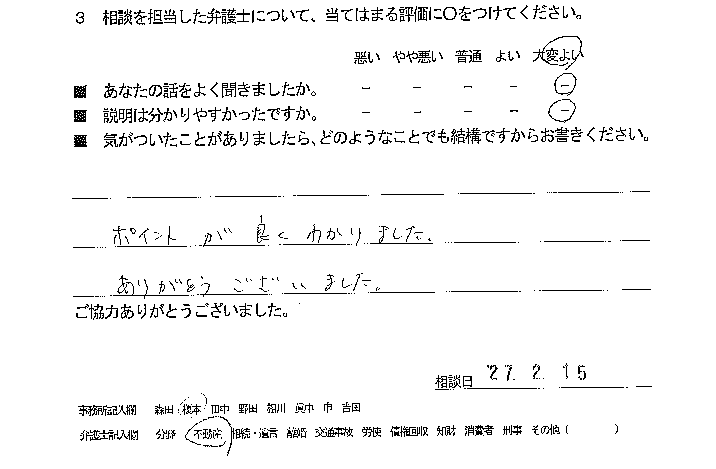 3 相談を担当した弁護士について、当てはまる評価に○をつけてください。
悪い やや悪い 普通 よい 大変よい
■ あなたの話をよく聞きましたか。 － － － － －
■ 説明は分かりやすかったですか。 － － － － －
■ 気がついたことがありましたら、どのようなことでも結構ですからお書きください。
ポイントが良くわかりました。
ありがとうございました。
ご協力ありがとうございました。
相談日 '27. 2. 15
事務所記入欄 森田 橋本 田中 野田 翔川 眞中 申 吉田
弁護士記入欄 分野 不動産 相続・遺言 離婚 交通事故 労使 債権回収 知財 消費者 刑事 その他（ ）